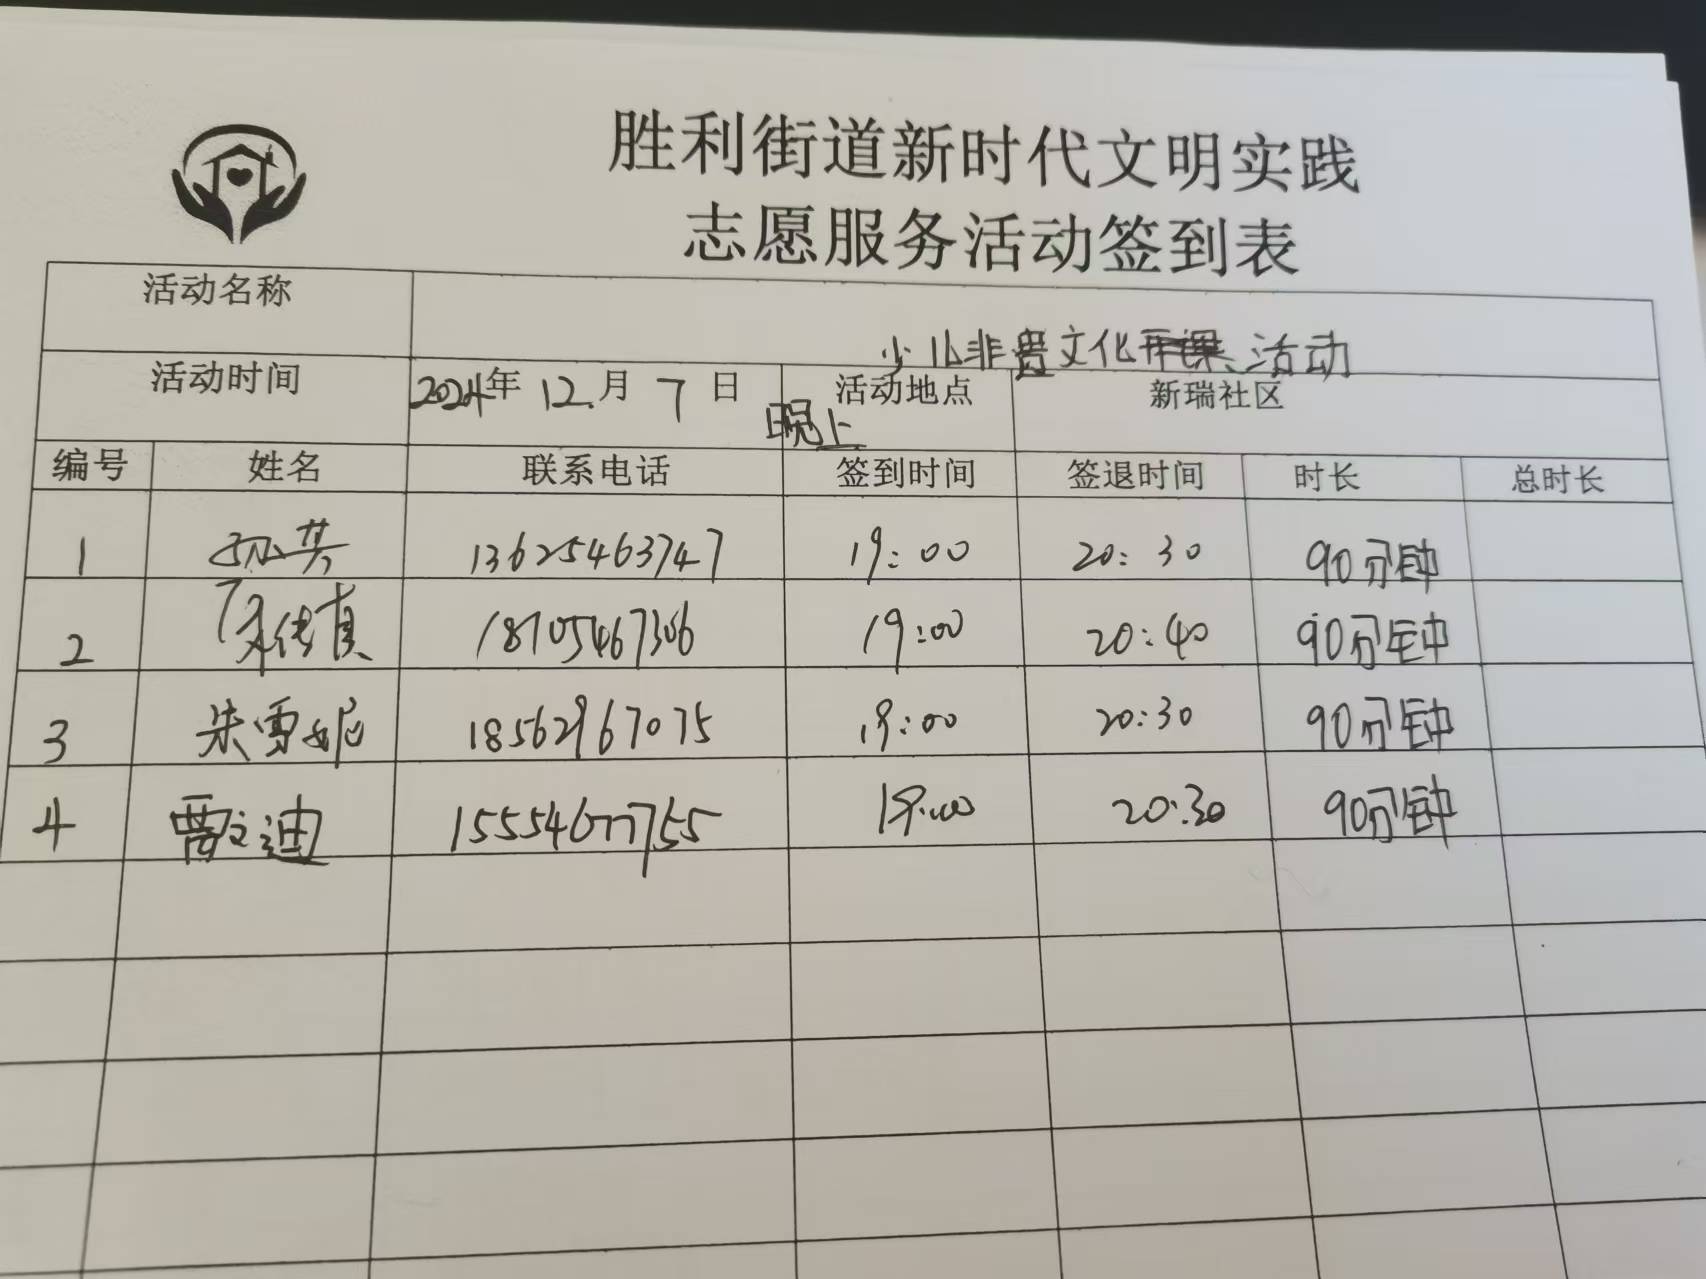 胜利街道新时代文明实践
志愿服务活动签到表
活动名称 少儿非贵文化活动
活动时间 2024年 12.月 7 日 晚上 活动地点 新瑞社区
编号 姓名 联系电话 签到时间 签退时间 时长 总时长
1 13625463747 19:00 20:30 90分钟
2 18705467306 19:00 20:40 90分钟
3 朱雪妮 18562967075 19:00 20:30 90分钟
4 贾文迪 15554677755 19:00 20:30 90分钟